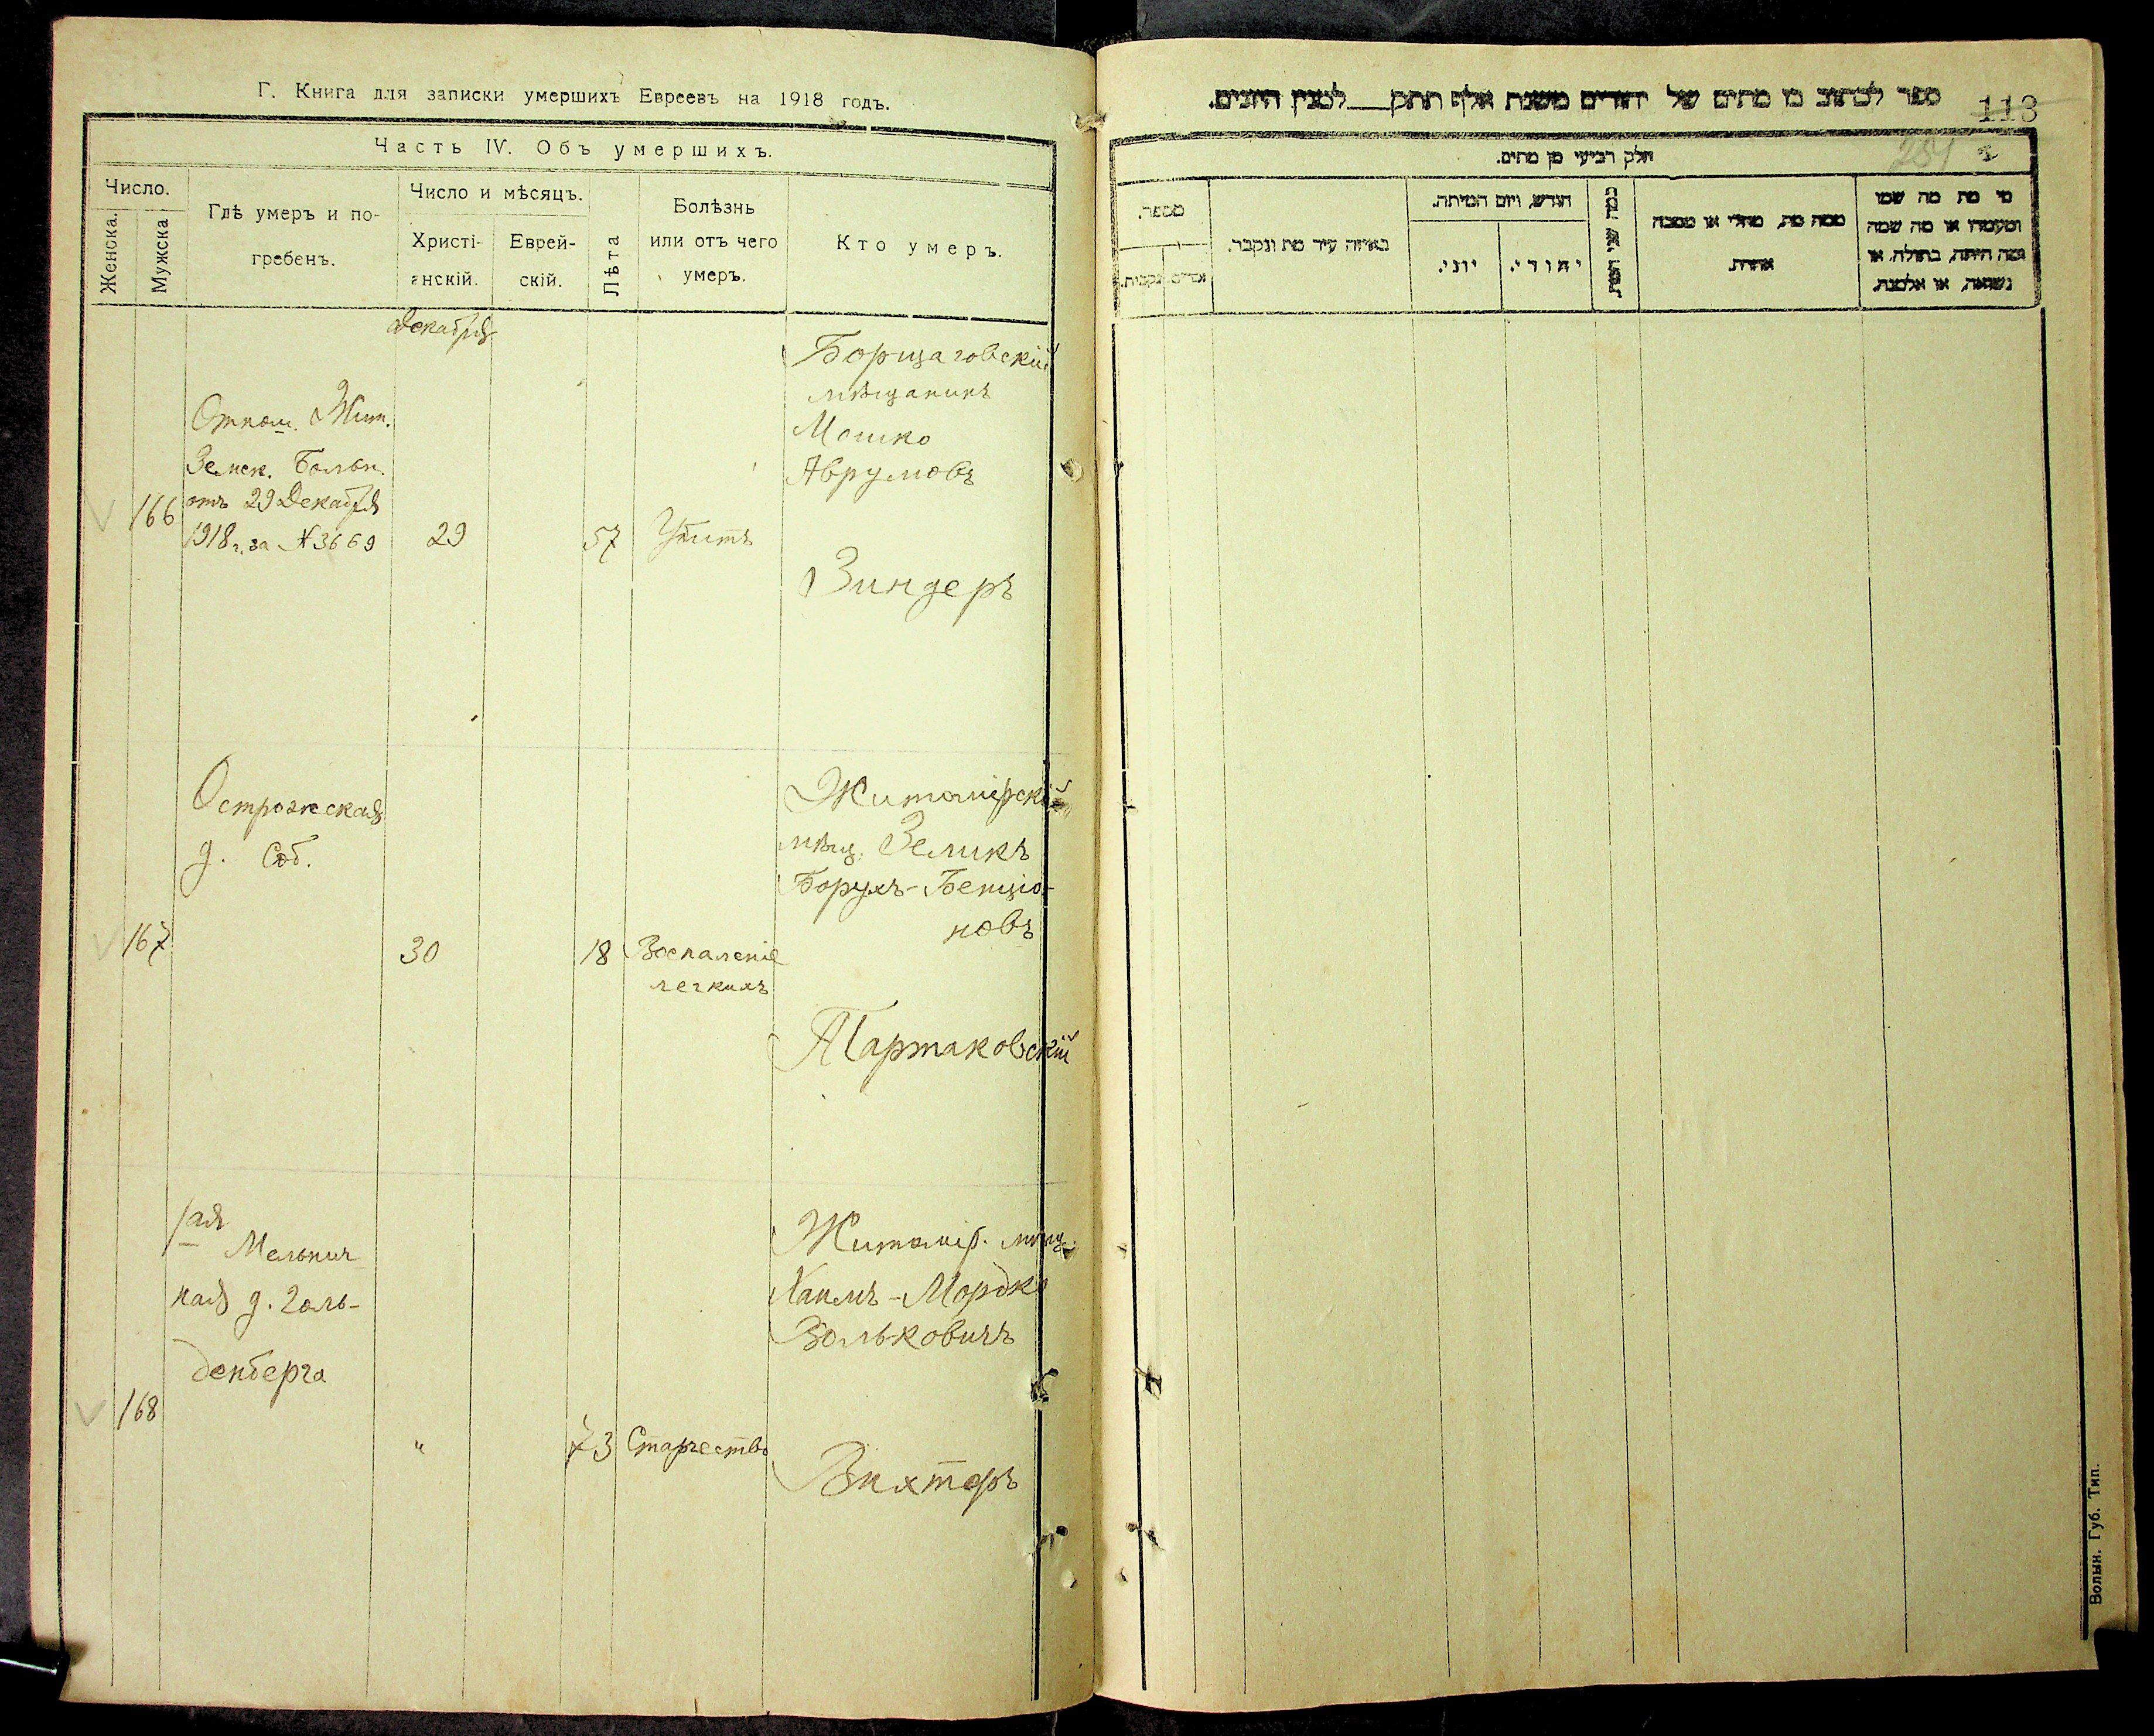 Г. Книга для записки умершихъ Евреевъ на 1918 годъ.
Часть IV. Объ умершихъ.
Число.
Женска.
Мужска
Гдѣ умеръ и по-
гребенъ.
Число и мѣсяцъ.
Христі-
анскій.
Еврей-
скій.
Лѣта
Болѣзнь
или отъ чего
умеръ.
Кто умеръ.
Декабря
166
Отнош. Жит.
Земск. Больн.
отъ 29 Декабря
1918 г. за № 3669
29
57
Убитъ
Борщаговскій
мѣщанинъ
Мошко
Аврумовъ
Зиндеръ
167
Острожская
д. Соб.
30
18
Воспаленіе
легкихъ
Житомірскій
мѣщ. Зеликъ
Борухъ-Бенціо-
новъ
Тартаковскій
168
1ая
Мельнич
ная д. Голь-
денберга
"
73
Старчество
Житомір. мѣщ.
Хаимъ-Мордко
Вольковичъ
Вихтеръ
ספר לכתוב מן מתים של יהודים משנת אלף תתק__ למנין היונים.
113
254
חלק רביעי מן מתים.
מספר.
זכרים
נקבות.
באיזה עיר מת ונקבר.
חודש, ויום המיתה.
יוני.
יהודי.
כמה שני המת.
ממה מת, מחלי או מסבה
אחרת.
מי מת מה שמו
ומעמדו או מה שמה
ומה היתה, בתולה, או
נשואה, או אלמנה.
Волын. Губ. Тип.